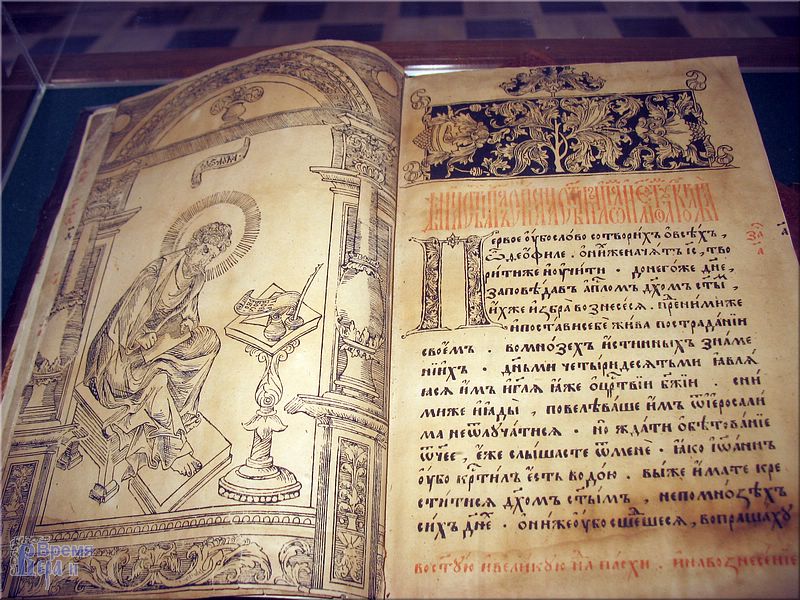 Первое ѹбо слово сотворихъ ѡ всѣхъ ,
ѽ ѳеофиле . ѡ ниже начатъ іс҃ , тво
рити же и ѹчити . до негоже дн҃е ,
заповѣдавъ ап҃лом дх҃ом ст҃ым ,
ихже избра вознесеся . пред ними же
и постави себе жива по страданіи
своем . во мнозех истинныхъ знаме
ніихъ . дн҃ьми четыридесятьми ꙗвлꙗ
ꙗся им и гл҃ꙗ ꙗже о цр҃твіи бж҃іи . с ни
миже и ꙗды , повелѣваше им ѿ іеросали
ма не ѿлучатися . но ждати обѣтованіе
ѿч҃ее , еже слышасте ѿ мене . ꙗко іѡаннъ
ѹбо крт҃илъ есть водою . вы же имате кре
ститися дх҃ом ст҃ым , не по мнозѣхъ
сихъ дн҃е . они же ѹбо сшедшеся , вопрашаху
во ст҃ую и великую пасхи . и на вознесение
Время